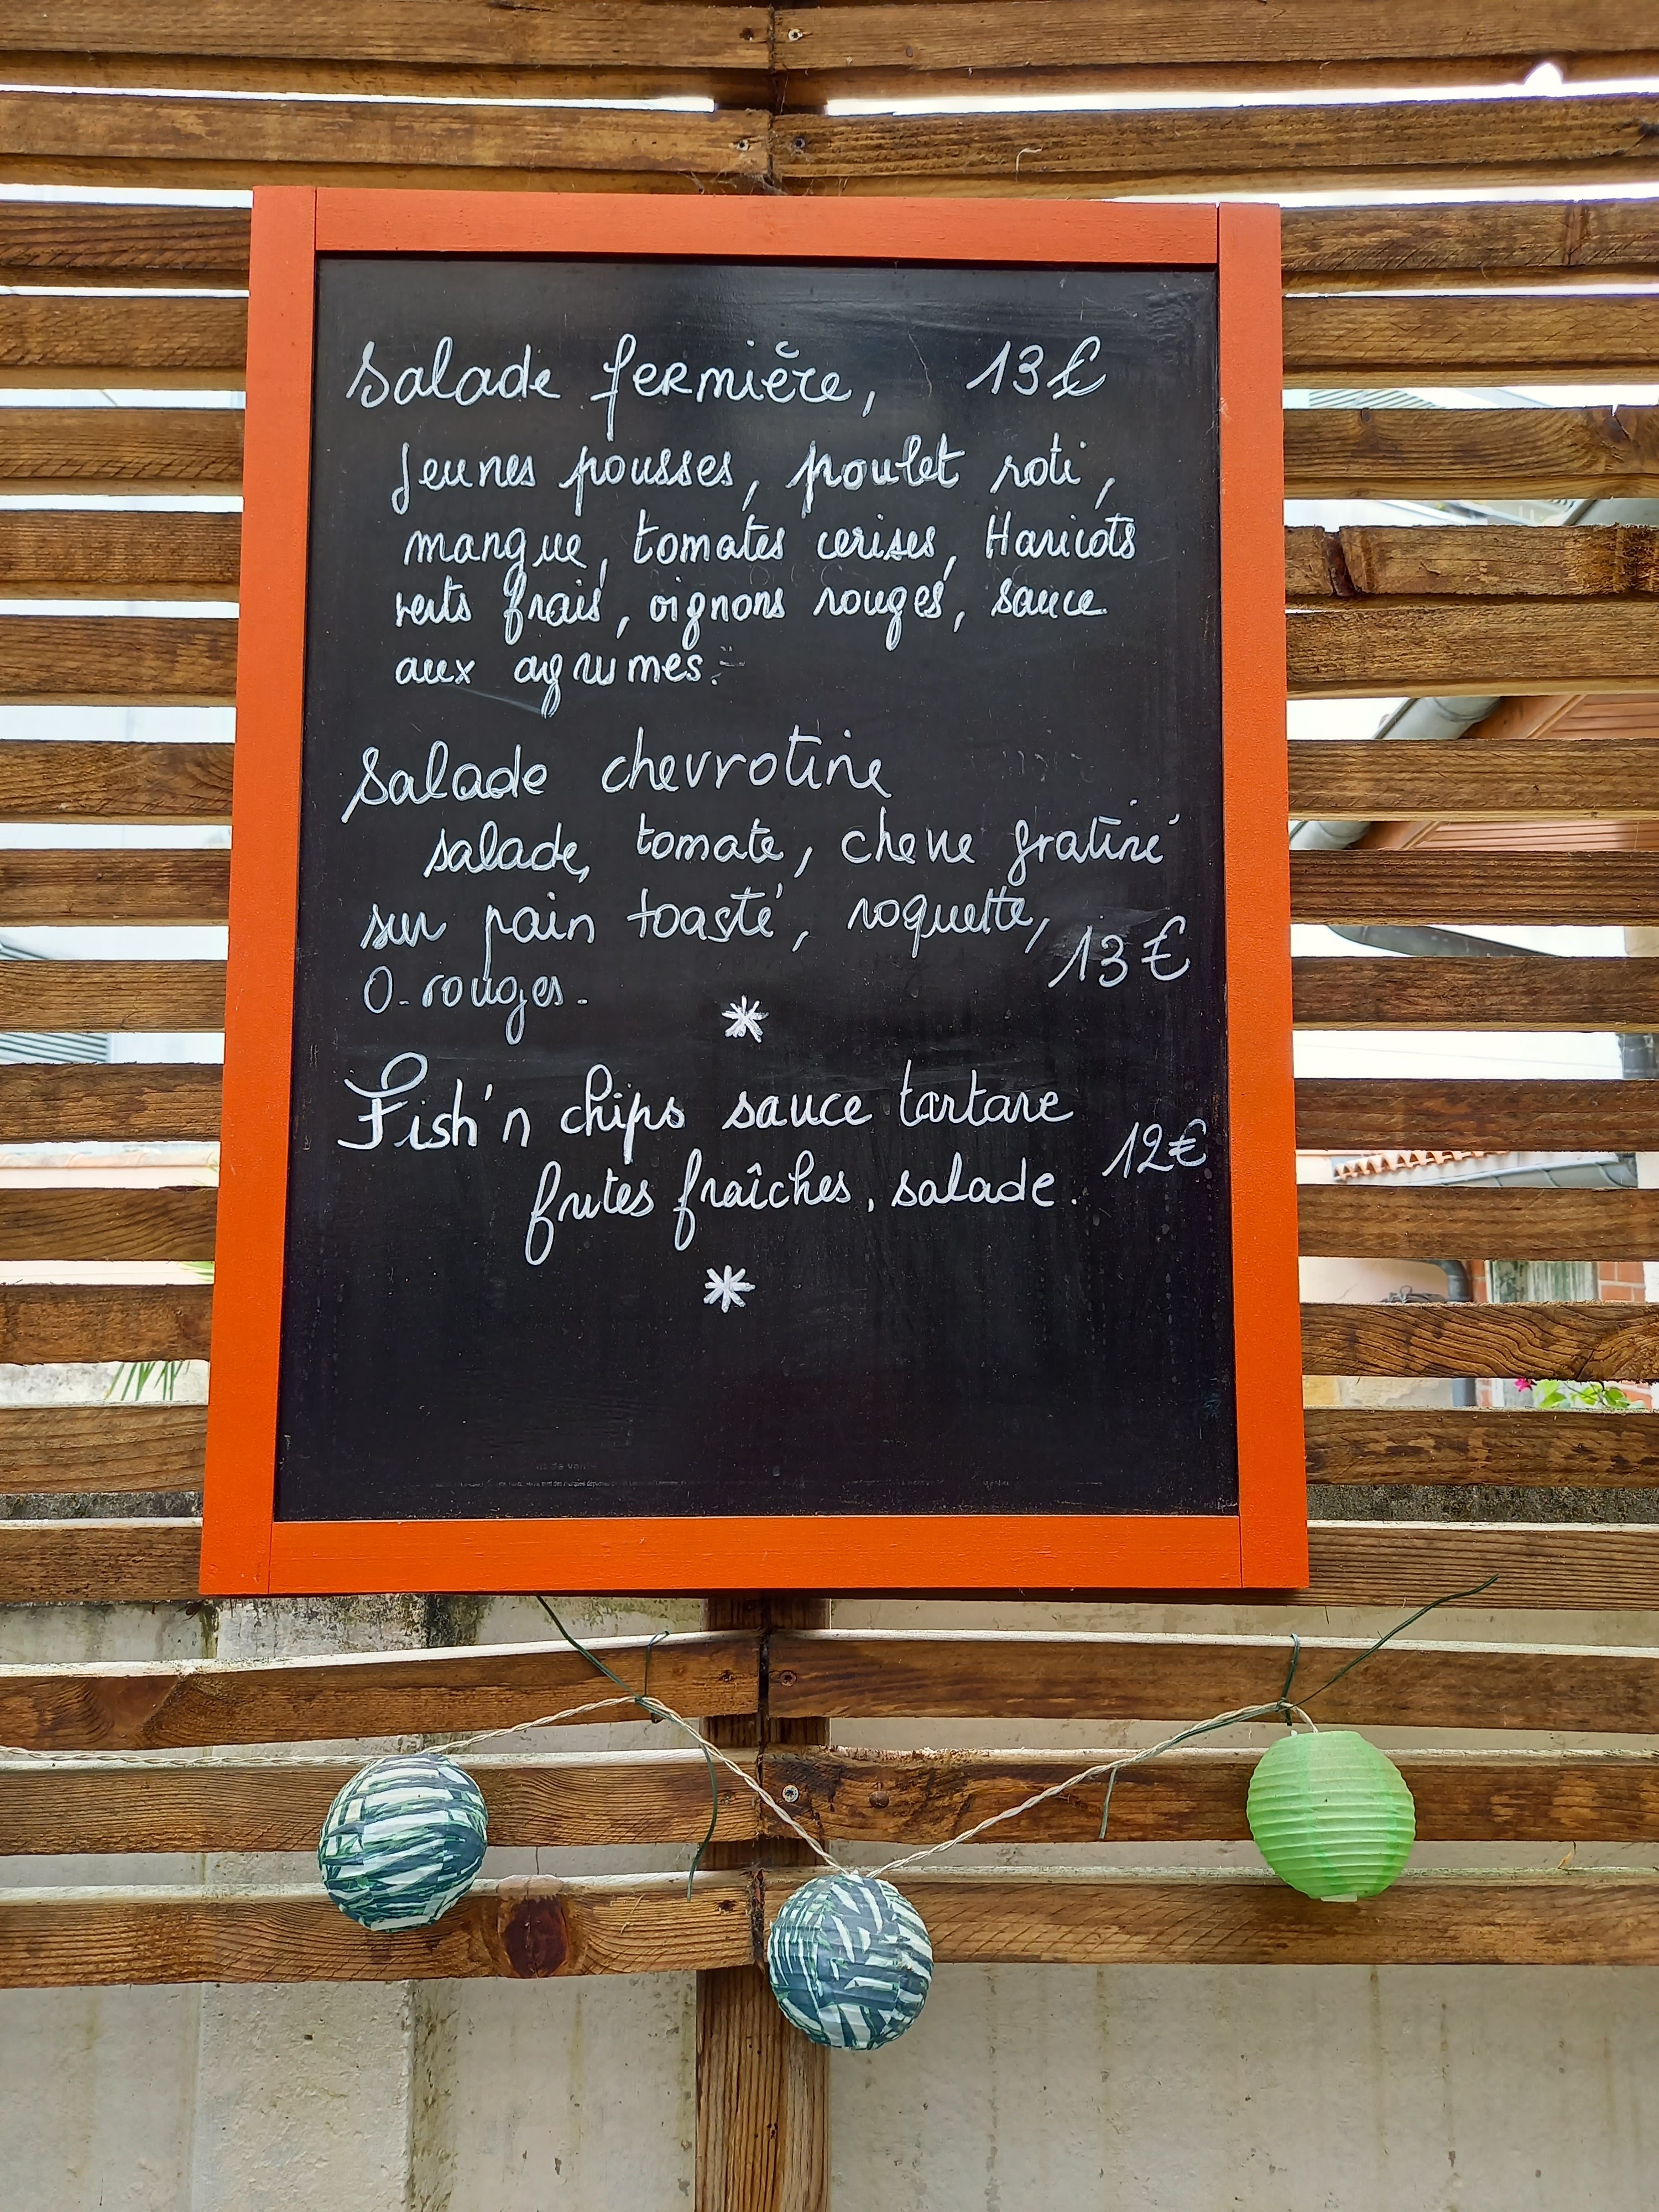 Salade fermière, 13€
Jeunes pousses, poulet roti,
mangue, tomates cerises, Haricots
verts frais, oignons rouges, sauce
aux agrumes.
Salade chevrotine
salade, tomate, chevre gratiné
sur pain toasté, roquette,
O. rouges. 13€
*
Fish'n chips sauce tartare
frites fraîches, salade. 12€
*